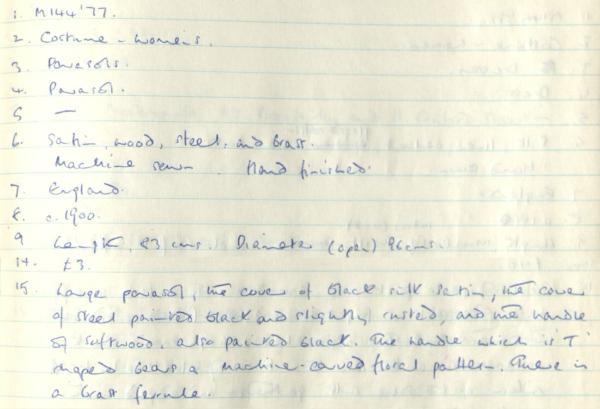 1. M144'77.
2. Costume - womens.
3. Parasols.
4. Parasol.
5 —
6. Satin, wood, steel, and brass.
Machine sewn. Hand finished.
7. England.
8. c.1900.
9 Length, 83 cms. Diameter (open) 96cms.
14. £3.
15. Large parasol, the cover of black silk satin, the cover
of steel painted black and slightly rusted, and the handle
of softwood, also painted black. The handle which is 'T'
shaped bears a machine-carved floral pattern. There is
a brass ferrule.